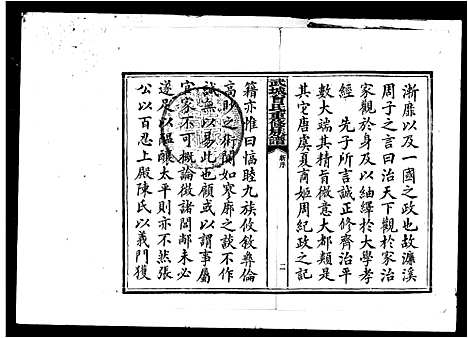 漸靡以及一國之政也故濂溪
周子之言曰治天下觀於家治
家觀於身及以紬繹於大學孝
經先子所言誠正修齊治平
數大端其精旨微意大都類是
其它唐虞夏商姬周紀政之記
武城曾氏重修族譜
新序
二
籍亦惟曰惇睦九族攸敘彝倫
高眇之術閎如寥廓之談不作
試無以易此也顧或以謂事屬
宜家不可概論微諸閭邮未必
遂足以醞釀太平則亦不然張
公以百忍上殿陳氏以義門獲